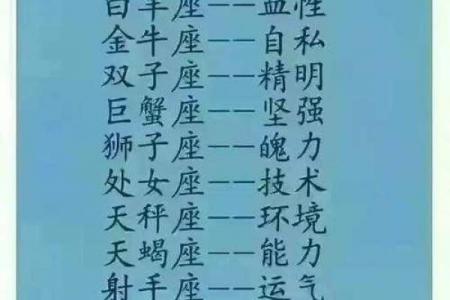 白羊座——血性
金牛座——自私
双子座——精明
巨蟹座——坚强
狮子座——魄力
处女座——技术
天秤座——环境
天蝎座——能力
射手座——运气